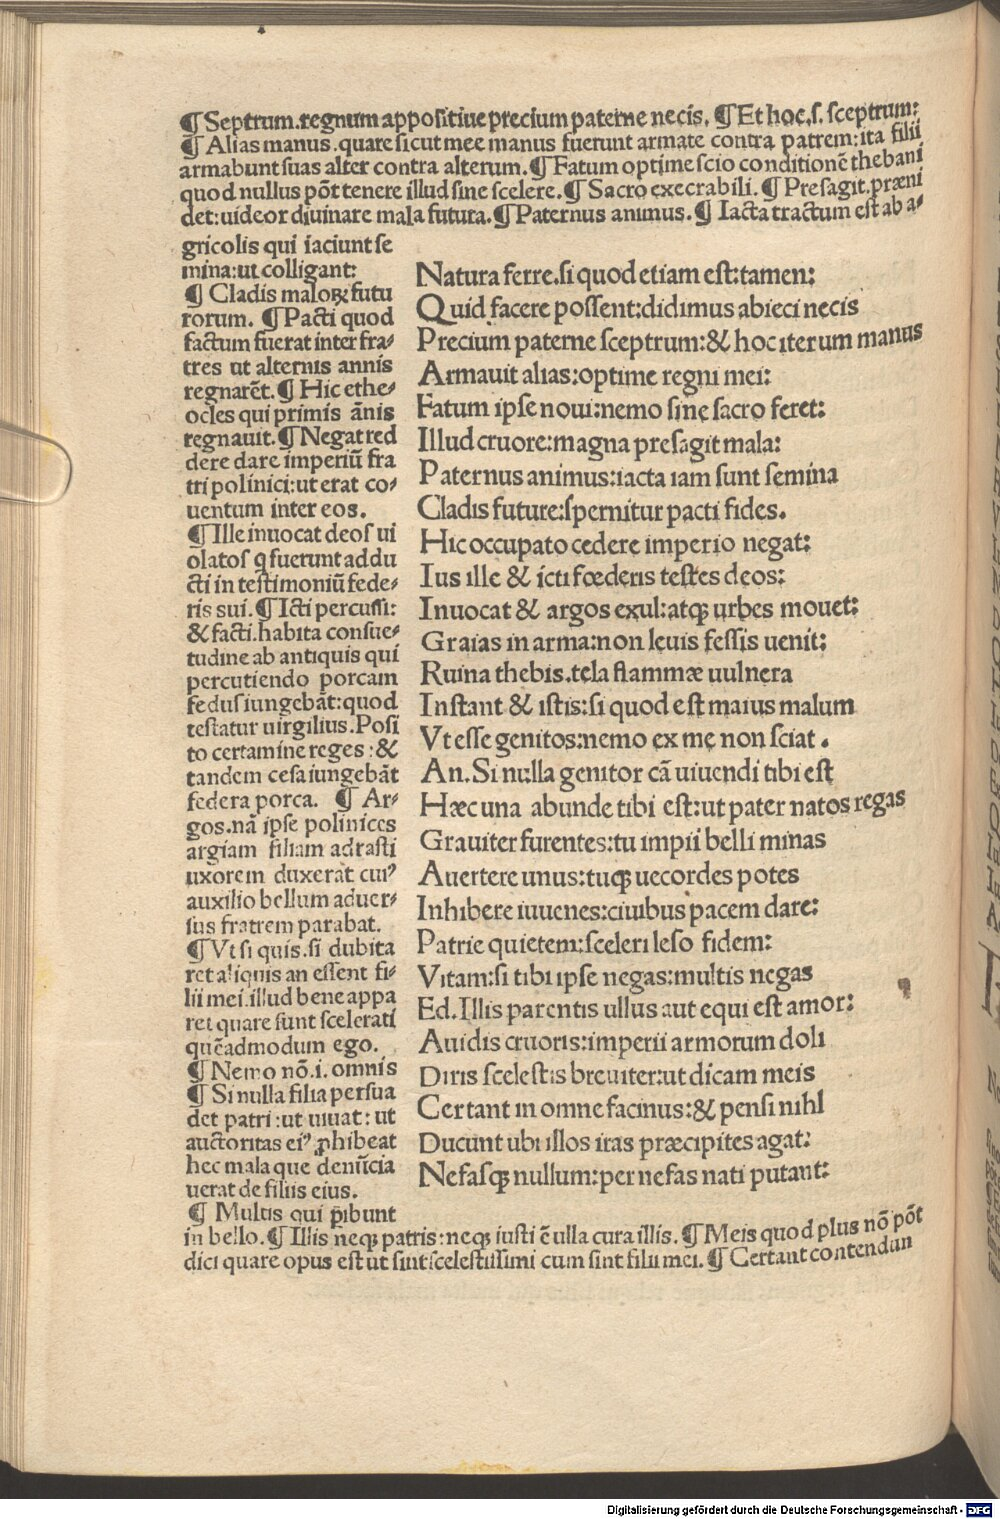 ¶ Septrum.regnum appoſitiue precium paterne necis. ¶ Et hoc.ſ. ſceptrum:
¶ Alias manus.quare ſicut mee manus fuerunt armate contra patrem:ita filii
armabunt ſuas alter contra alterum. ¶ Fatum optime ſcio conditionē thebani
quod nullus pōt tenere illud ſine ſcelere. ¶ Sacro execrabili. ¶ Preſagit.præni
det:uideor diuinare mala futura. ¶ Paternus animus. ¶ Iacta tractum eſt ab a⸗
gricolis qui iaciunt ſe
mina:ut colligant:
¶ Cladis maloꝝ futu
rorum. ¶ Pacti quod
factum fuerat inter fra⸗
tres ut alternis annis
regnarēt. ¶ Hic ethe⸗
ocles qui primis ānis
regnauit. ¶ Negat red
dere dare imperiū fra
tri polinici:ut erat co⸗
uentum inter eos.
¶ Ille inuocat deoſ ui
olatoſ q̄ fuerunt addu
cti in teſtimoniū fede⸗
ris ſui. ¶ Icti percuſſi:
& facti.habita conſue⸗
tudine ab antiquis qui
percutiendo porcam
fedus iungebāt:quod
teſtatur uirgilius.Poſi
to certamine reges:&
tandem ceſa iungebāt
federa porca. ¶ Ar⸗
gos.nā ipſe polinices
argiam filiam adraſti
uxorem duxerat cuiꝰ
auxilio bellum aduer⸗
ſus fratrem parabat.
¶ Vt ſi quis.ſi dubita
ret aliquis an eſſent fi⸗
lii mei.illud bene appa
ret quare ſunt ſcelerati
quēadmodum ego.
¶ Nemo nō.i. omnis
¶ Si nulla filia perſua
det patri:ut uiuat:ut
auctoritas eiꝰ ꝓhibeat
hec mala que denūcia
uerat de filiis eius.
¶ Multis qui p̄ibunt
in bello. ¶ Illis neqꝫ patris:neqꝫ iuſti ē ulla cura illis. ¶ Meis quod plus nō pōt
dici quare opus eſt ut ſint ſceleſtiſſimi cum ſint filii mei. ¶ Certant contendun
Natura ferre.ſi quod etiam eſt:tamen:
Quid facere poſſent:didimus abieci necis
Precium paterne ſceptrum:& hoc iterum manus
Armauit alias:optime regni mei:
Fatum ipſe noui:nemo ſine ſacro feret:
Illud cruore:magna preſagit mala:
Paternus animus:iacta iam ſunt ſemina
Cladis future:ſpernitur pacti fides.
Hic occupato cedere imperio negat:
Ius ille & icti fœderis teſtes deos:
Inuocat & argos exul:atqꝫ urbes mouet:
Graias in arma:non leuis feſſis uenit:
Ruina thebis.tela flammæ uulnera
Inſtant & iſtis:ſi quod eſt maius malum
Vt eſſe genitos:nemo ex me non ſciat.
An.Si nulla genitor cā uiuendi tibi eſt
Hæc una abunde tibi eſt:ut pater natos regas
Grauiter furentes:tu impii belli minas
Auertere unus:tuqꝫ uecordes potes
Inhibere iuuenes:ciuibus pacem dare:
Patrie quietem:ſceleri leſo fidem:
Vitam:ſi tibi ipſe negas:multis negas
Ed.Illis parentis ullus aut equi eſt amor:
Auidis cruoris:imperii armorum doli
Diris ſceleſtis breuiter:ut dicam meis
Certant in omne facinus:& penſi nihl
Ducunt ubi illos iras præcipites agat:
Nefaſqꝫ nullum:per nefas nati putant:
Digitalisierung gefördert durch die Deutsche Forschungsgemeinschaft - DFG